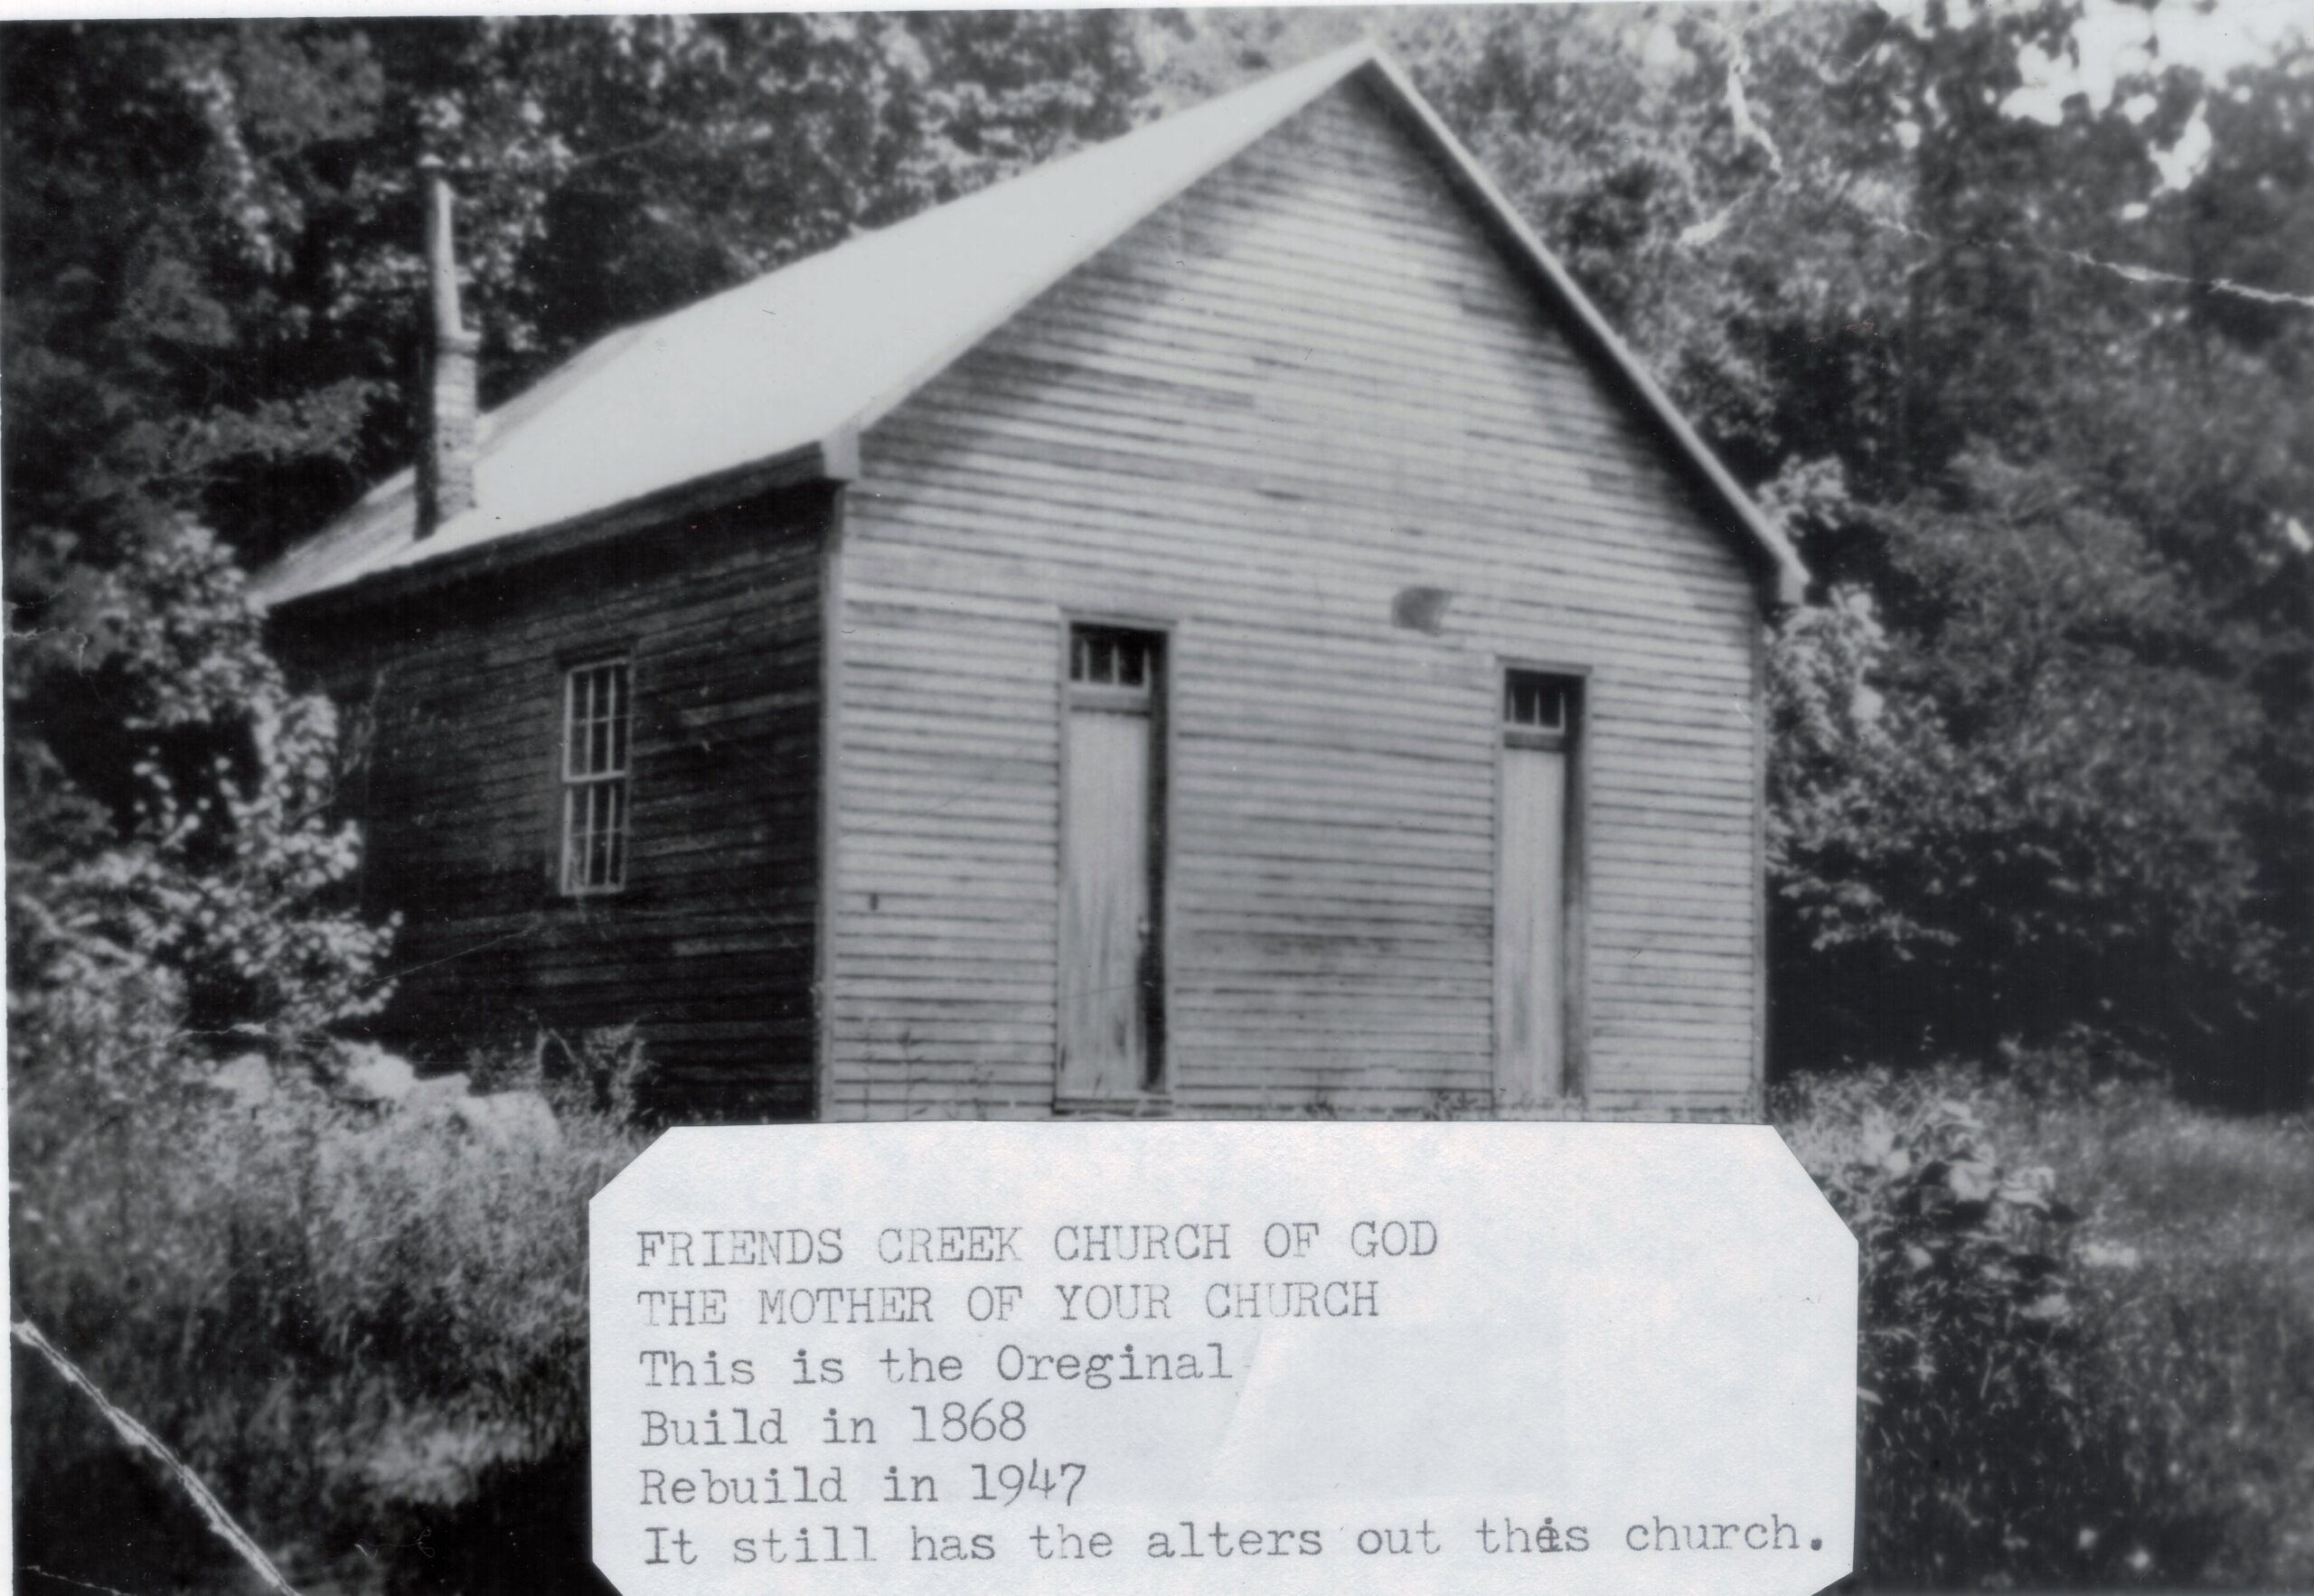 FRIENDS CREEK CHURCH OF GOD
THE MOTHER OF YOUR CHURCH
This is the Oreginal
Build in 1868
Rebuild in 1947
It still has the alters out this church.